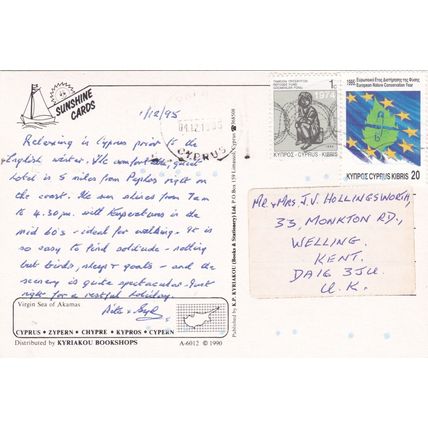 SUNSHINE
CARDS
1/12/95
04.12.1995
CYPRUS
Relaxing in Cyprus prior to the
English winter. The comfortable, quiet
hotel is 5 miles from Paphos right on
the coast. The sun shines from 7am
to 4.30pm. with temperatures in the
mid 60's - ideal for walking. It is
so easy to find solitude - nothing
but birds, sheep & goats - and the
scenery is quite spectacular. Just
right for a restful holiday.
Virgin Sea of Akamas
CYPRUS • ZYPERN • CHYPRE • KYPROS • CYPERN
Distributed by KYRIAKOU BOOKSHOPS
A-6012 © 1990
Published by K.P. KYRIAKOU (Books & Stationery) Ltd. P.O Box 159 Limassol, Cyprus ☎368508
1
1974
ΚΥΠΡΟΣ · CYPRUS · KIBRIS
1995 Ευρωπαϊκό Έτος Διατήρησης της Φύσης
European Nature Conservation Year
ΚΥΠΡΟΣ CYPRUS KIBRIS 20
Mr & Mrs J.V. HOLLINGSWORTH,
33, MONKTON RD.,
WELLING.
KENT.
DA16 3JU
U.K.